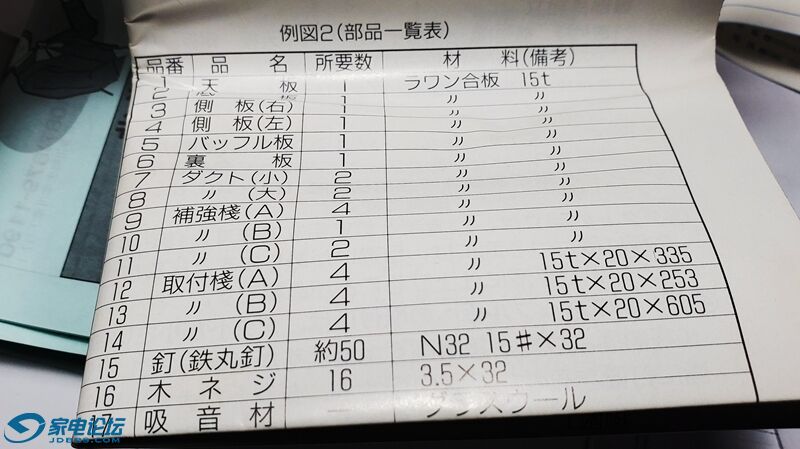 例図2(部品一覧表)
品番 品名 所要数 材料(備考)
1 天板 1 ラワン合板 15t
2 板 1 〃 〃
3 側板(右) 1 〃 〃
4 側板(左) 1 〃 〃
5 バッフル板 1 〃 〃
6 裏板 1 〃 〃
7 ダクト(小) 2 〃 〃
8 〃(大) 2 〃 〃
9 補強棧(A) 4 〃 〃
10 〃(B) 1 〃 〃
11 〃(C) 2 〃 〃
12 取付棧(A) 4 〃 15t×20×335
13 〃(B) 4 〃 15t×20×253
14 〃(C) 4 〃 15t×20×605
15 釘(鉄丸釘) 約50 N32 15#×32
16 木ネジ 16 3.5×32
17 吸音材 — グラスウール
家电论坛
JDBBS.COM